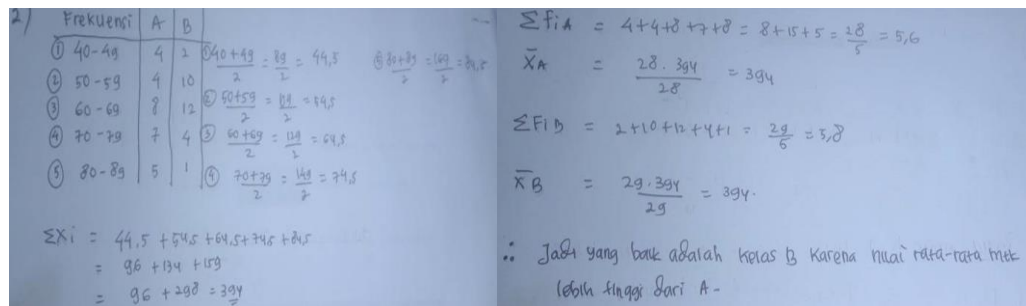 2)
Frekuensi A B
① 40-49 4 2
② 50-59 4 10
③ 60-69 8 12
④ 70-79 7 4
⑤ 80-89 5 1
① 40+49/2 = 89/2 = 44,5
② 50+59/2 = 109/2 = 54,5
③ 60+69/2 = 129/2 = 64,5
④ 70+79/2 = 149/2 = 74,5
⑤ 80+89/2 = 169/2 = 84,5
Σxi = 44,5 + 54,5 + 64,5 + 74,5 + 84,5
= 96 + 134 + 159
= 96 + 298 = 394
Σfi A = 4+4+8+7+8 = 8+15+5 = 28/5 = 5,6
X̄A = 28.394/28 = 394
ΣFi B = 2+10+12+4+1 = 29/5 = 5,8
X̄B = 29.394/29 = 394.
∴ Jadi yang baik adalah kelas B karena nilai rata-rata mtk
lebih tinggi dari A-